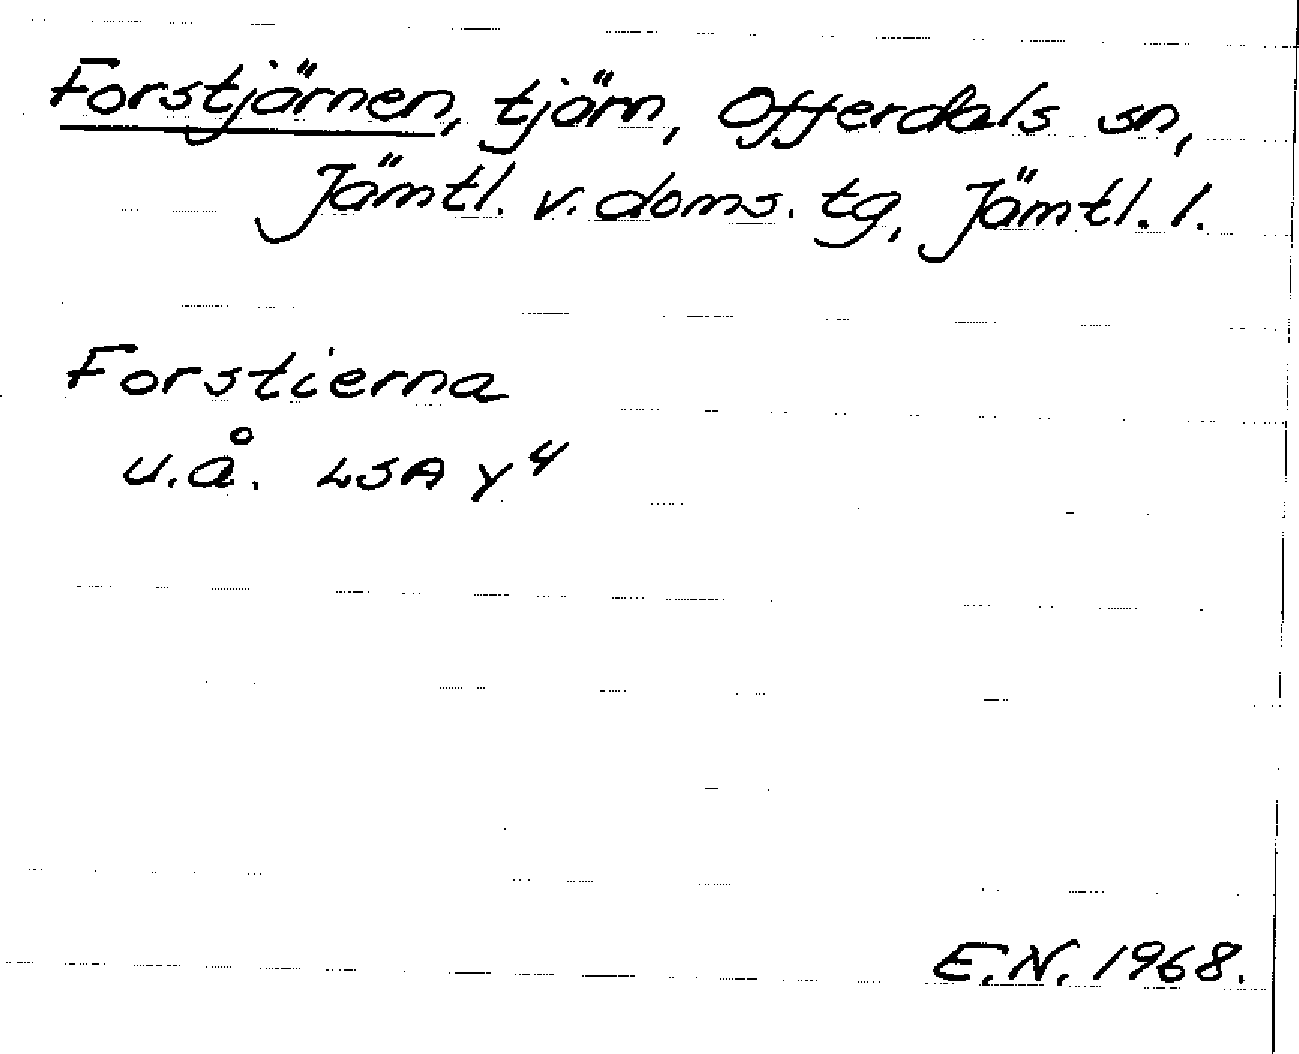 Forstjärnen, tjärn, Offerdals sn,
Jämtl. v. doms. tg, Jämtl. l.
Forstierna
u.å. LSA Y⁴
E.N. 1968.